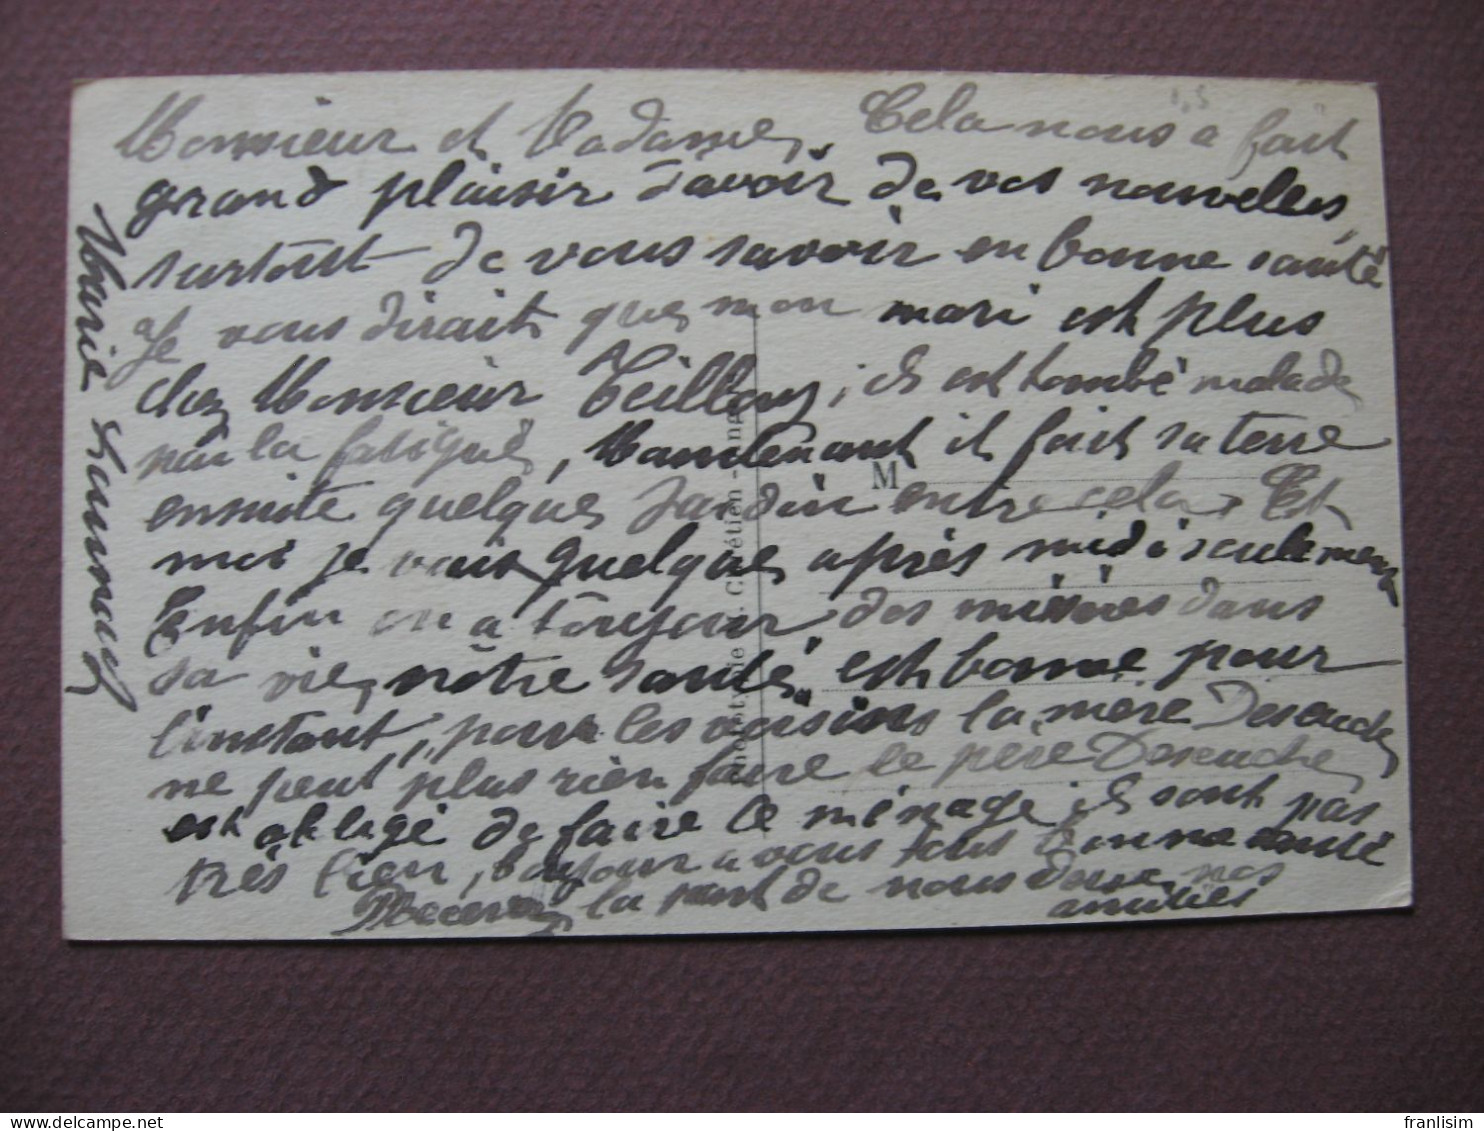 Monsieur et Madame, Cela nous a fait
grand plaisir d'avoir de vos nouvelles,
surtout de vous savoir en bonne santé
Je vous dirait que mon mari est plus
chez Monsieur Teillay, il est tombé malade
par la fatigue, Maintenant il fait sa terre
ensuite quelques Jardin entre cela. Et
moi je vais quelques après midi seulement
Enfin on a toujour des misères dans
sa vie, nôtre santé est bonne pour
l'instant, pour les voisins la mère Deseuche
ne peut plus rien faire le père Deseuche
est obligé de faire le ménage, ils sont pas
très bien, toujour a vous tous bonne santé
Recevez la part de nous deux nos
amitiés
Marie
M
Phototypie . Chrétien - Ang
1,5
franlisim
delcampe.net